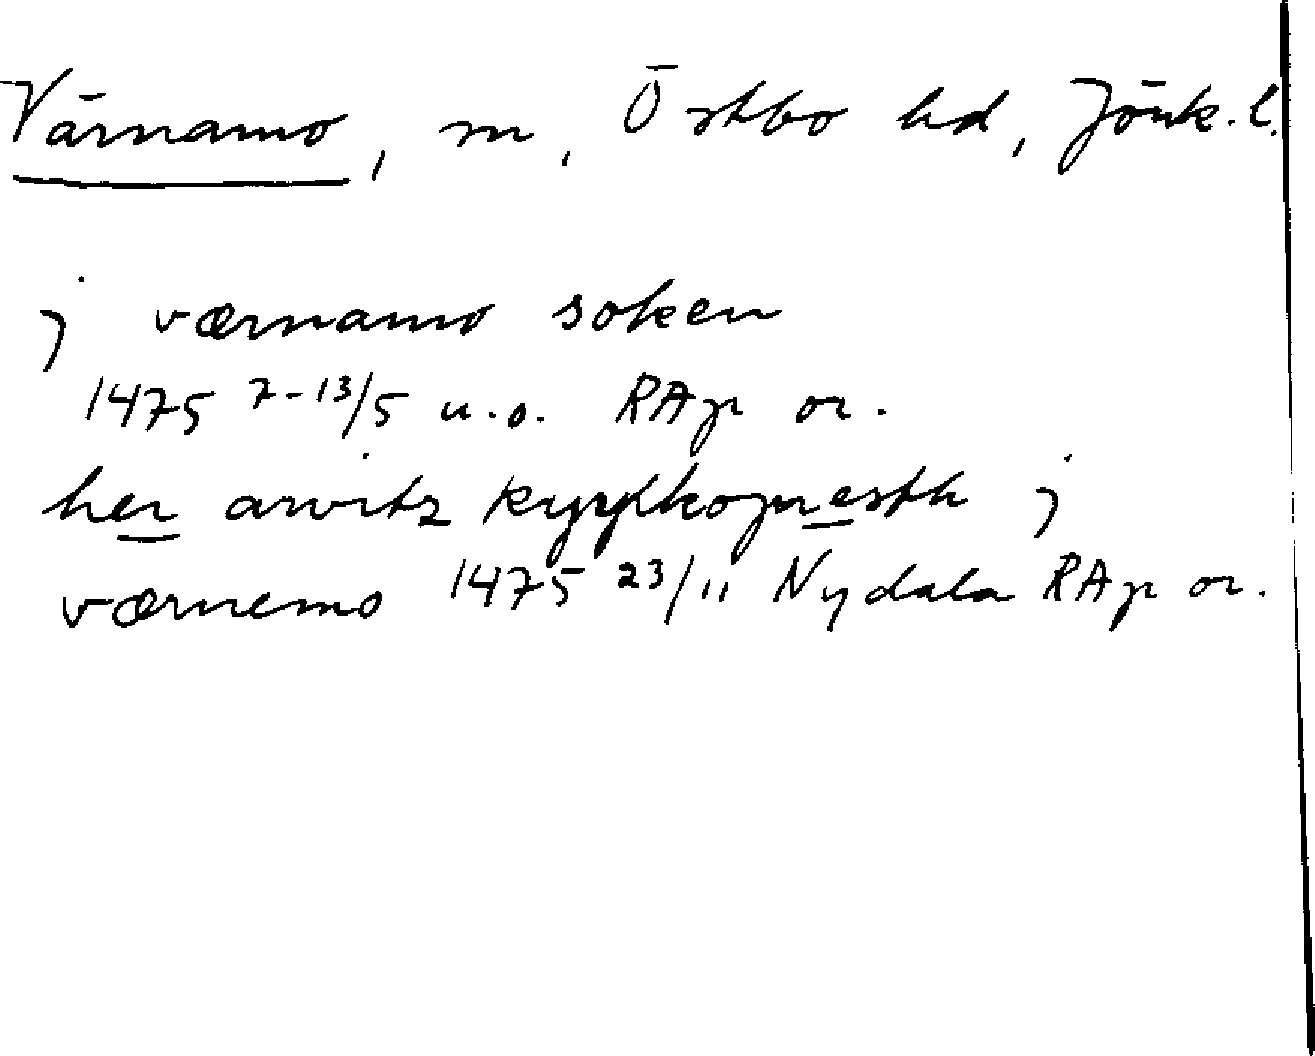 Värnamo, sn, Östbo hd, Jönk. l.
j værnamo soken
1475 7-13/5 u.o. RAp or.
her arvitz kyrkoprestk j
værnemo 1475 23/11 Nydala RAp or.